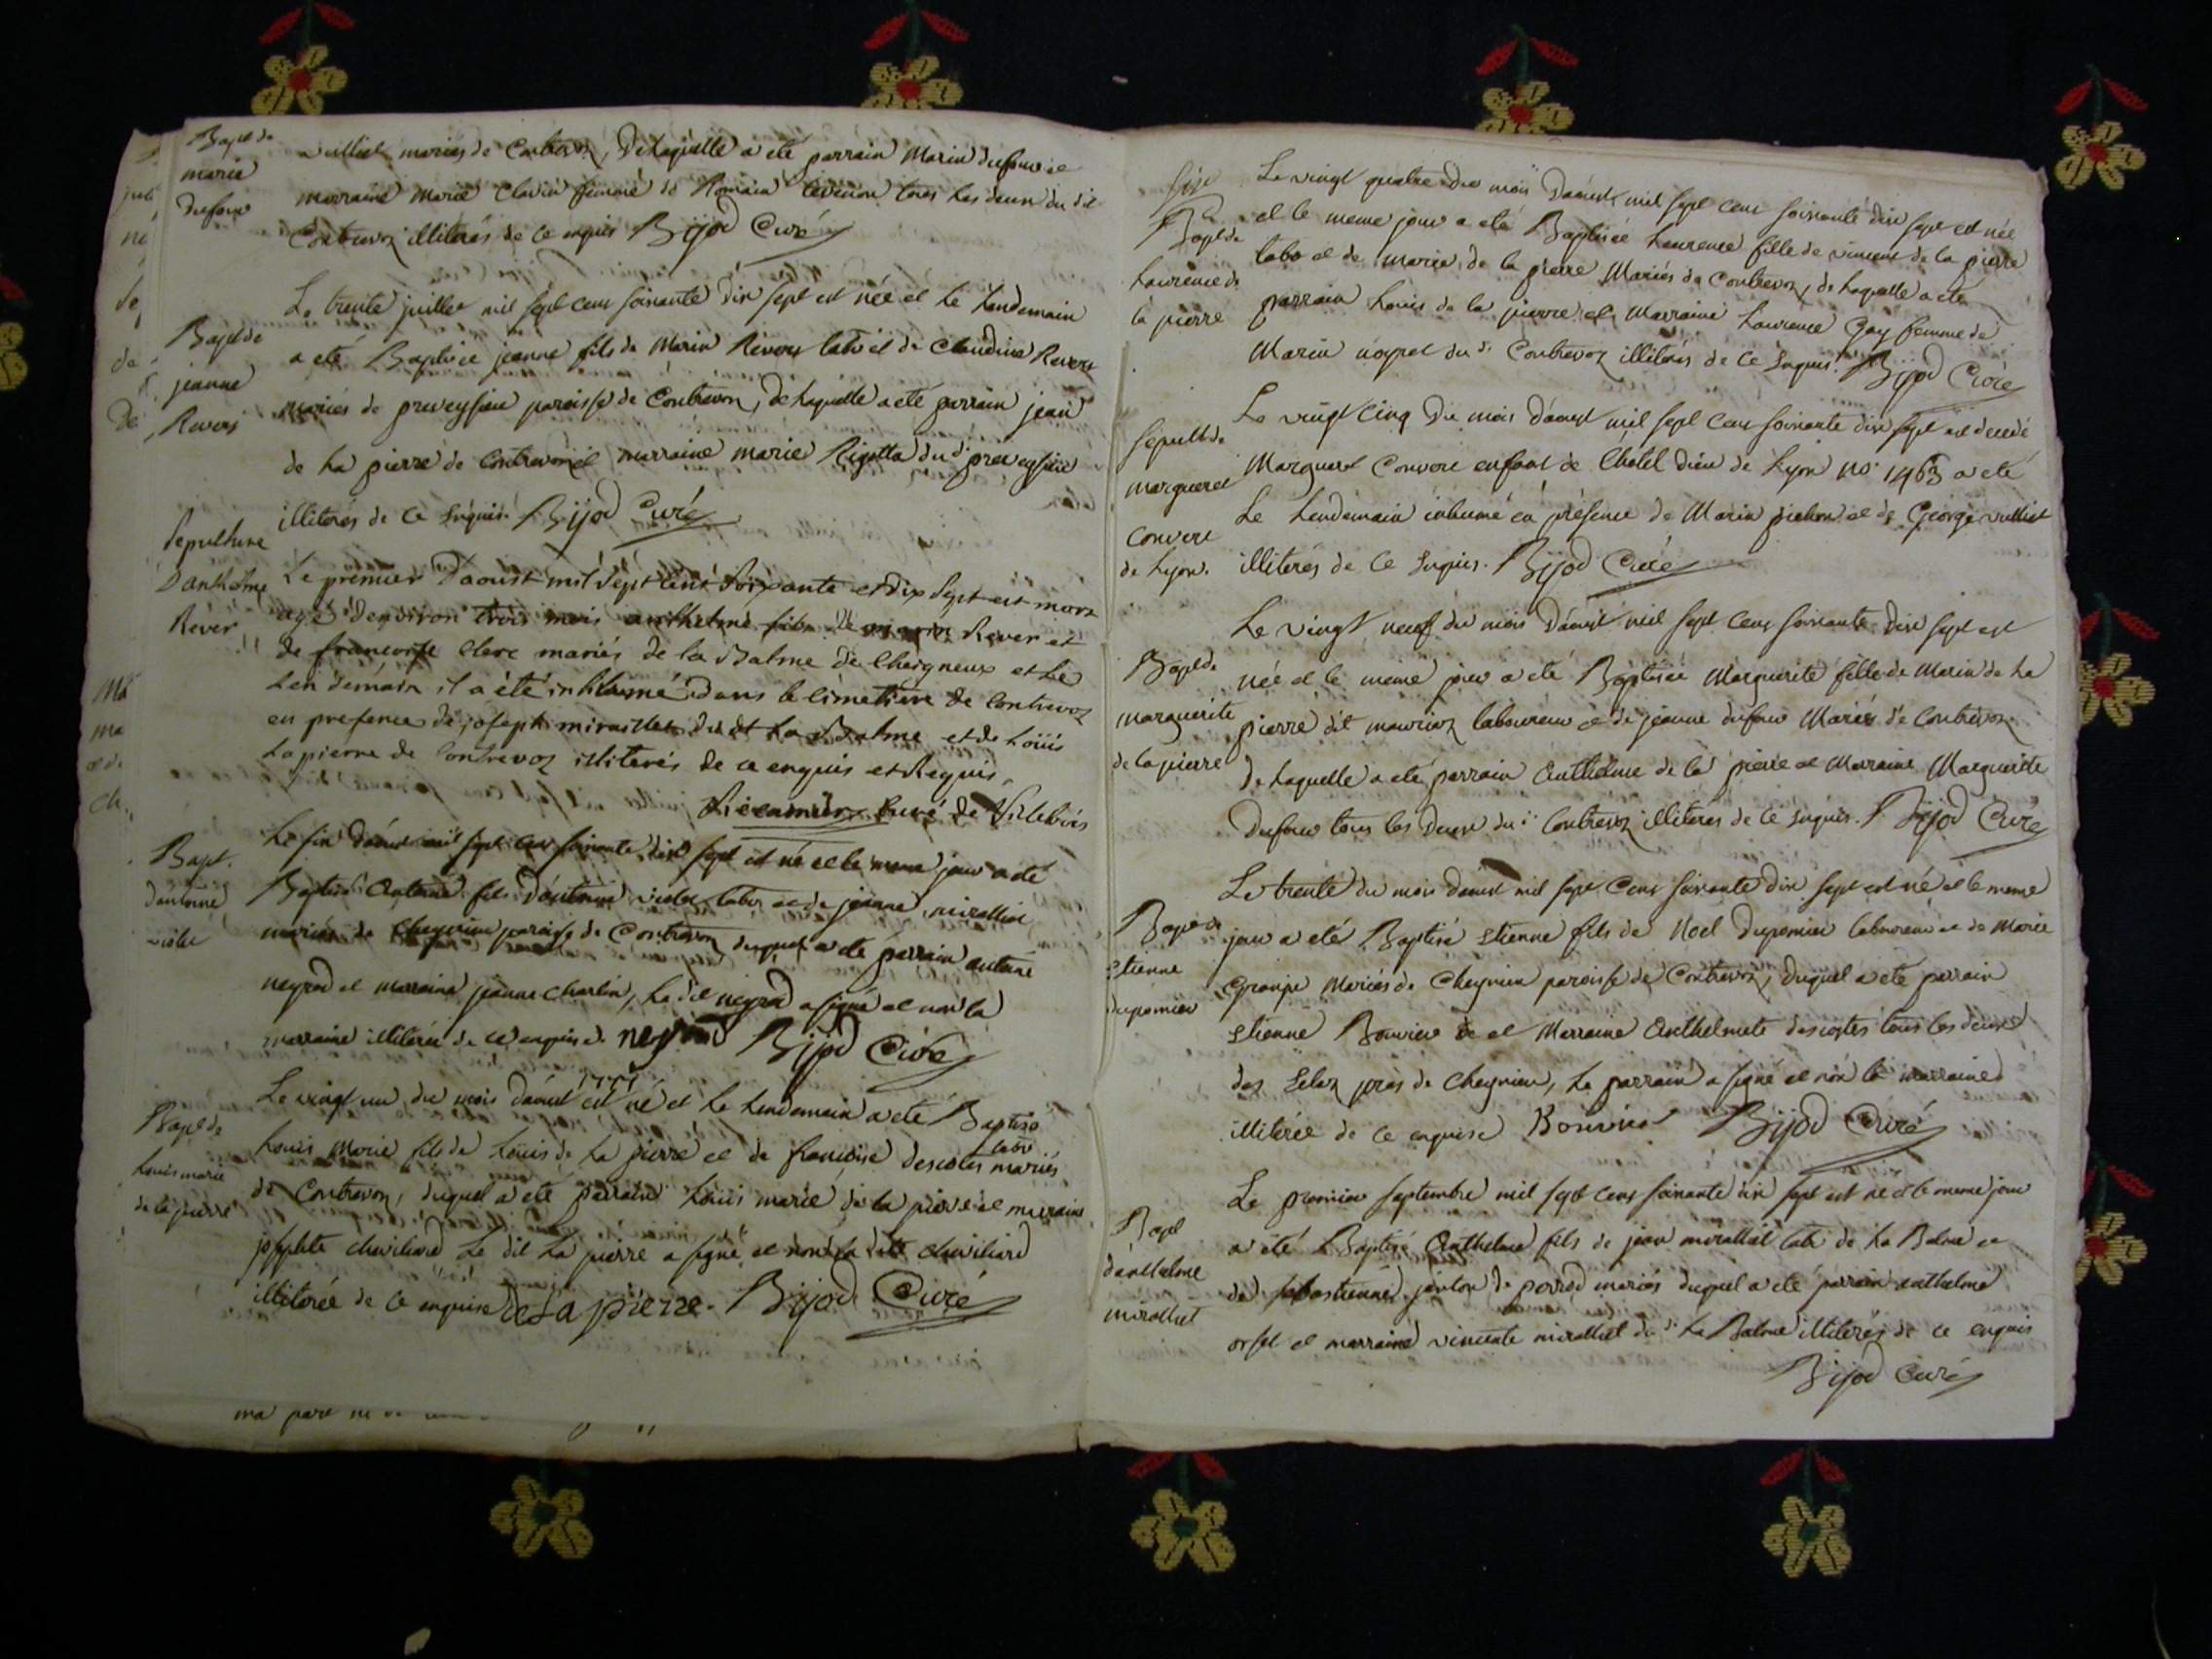 Bapt de
marie
dufour
vulliet mariés de Contrevoz, de laquelle a été parrain Marin dufour et
marraine Marie Clavin femme de Romain tous les deux du dit
Contrevoz illiterés de ce enquis Bijod Curé
Bapt de
jeanne
Revers
Le trente juillet mil sept cens soixante dix sept est née et le lendemain
a eté Baptisée jeanne fils de Marin Revers labr et de Claudine Revers
mariés de preveysieu paroisse de Contrevoz, de laquelle a eté parrain jean
de la pierre de Contrevoz et marraine marie Rigotta du dt preveysieu
illiterés de ce enquis. Bijod Curé
Sepulture
Danthelme
Rever
Le premier Daoust mil Sept cent soixante et dix Sept est mort
agé d'environ trois mois anthelme fils de Rever et
de francoise Clerc mariés de la Balme de Cheigneux et le
lendemain il a été inhumé dans le cimetiere de Contrevoz
en presence de joseph miraillet du dt La Balme et de Loüis
Lapierre de Contrevoz illiterés de ce enquis et Requis
Récamier Curé de Villebois
Bapt.
dantoine
violet
Le six Daoust mil sept cens soixante dix sept est né et le meme jour a eté
Baptisé Antoine fils d'Antoine violet labr et de jeanne miralliet
mariés de Cheynieu paroisse de Contrevoz duquel a eté parrain antoine
neyrod et marraine jeanne charlin, le dit neyrod a signé et non la
marraine illiterée de ce enquise. neyrod Bijod Curé
Bapt de
Louis marie
de la pierre
Le vingt un du mois Daoust 1777 est né et le lendemain a eté Baptisé
Louis Marie fils de Loüis de la pierre labr et de francoise descotes mariés
de Contrevoz, duquel a eté parrain Loüis marie de la pierre et marraine
josephte chevilliard Le dit La pierre a signé et non la dite chevilliard
illiterée de ce enquise de La pierre. Bijod Curé
Bapt de
Laurence de
la pierre
Le vingt quatre du mois Daoust mil sept cens soixante dix sept est née
et le meme jour a eté Baptisée Laurence fille de vincent de la pierre
labr et de marie de la pierre Mariés de Contrevoz, de laquelle a eté
parrain Louis de la pierre et Marraine Laurence Gay femme de
Marin du dt Contrevoz illiterés de ce enquis. Bijod Curé
Sepult de
marguerel
Convert
de Lyon.
Le vingt cinq Du mois Daoust mil sept cens soixante dix sept est decedé
Marguerel Convert enfant de l'hotel dieu de Lyon no. 1463 a eté
Le Lendemain inhumé en présence de Marin pichon et de George vulliet
illiterés de ce enquis. Bijod Curé
Bapt de
marguerite
de la pierre
Le vingt neuf du mois Daoust mil sept cens soixante dix sept est
née et le meme jour a eté Baptisée Marguerite fille de Marin de la
pierre dit mauriaz laboureur et de jeanne dufour Mariés de Contrevoz
de laquelle a eté parrain Anthelme de la pierre et Marraine Marguerite
Dufour tous les deux du dt Contrevoz illiterés de ce enquis. Bijod Curé
Bapt de
etienne
dupomier
Le trente du mois Daoust mil sept cens soixante dix sept est né et le meme
jour a eté Baptisé Etienne fils de Noel Dupomier laboureur et de Marie
Grange Mariés de Cheynieu paroisse de Contrevoz, duquel a eté parrain
Etienne Bonvier et Marraine Anthelmete descotes tous les deux
des Selaz près de Cheynieu, Le parrain a signé et non la marraine
illiterée de ce enquise Bonvier Bijod Curé
Bapt
danthelme
miralliet
Le premier septembre mil sept cens soixante dix sept est né et le meme jour
a eté Baptisé Anthelme fils de jean miralliet labr de La Balme et
de Sebastienne de perrod mariés duquel a eté parrain anthelme
orset et marraine vincente miralliet du dt La Balme illiterés de ce enquis
Bijod Curé